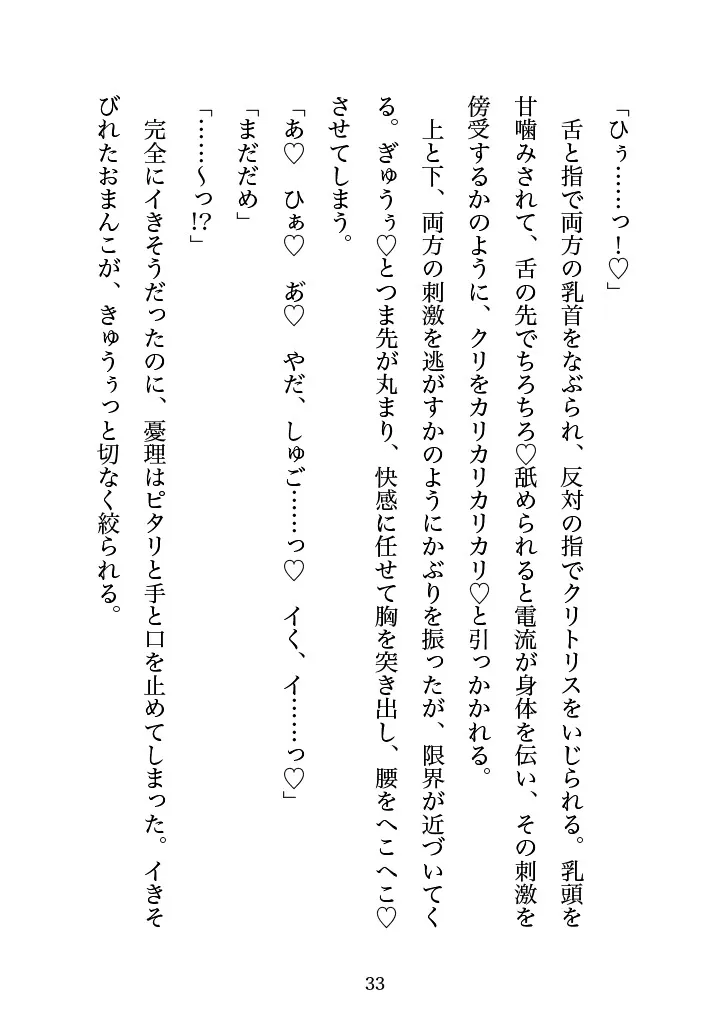 「ひぅ……っ！♡」
　舌と指で両方の乳首をなぶられ、反対の指でクリトリスをいじられる。乳頭を
甘噛みされて、舌の先でちろちろ♡舐められると電流が身体を伝い、その刺激を
傍受するかのように、クリをカリカリカリカリ♡と引っかかれる。
　上と下、両方の刺激を逃がすかのようにかぶりを振ったが、限界が近づいてく
る。ぎゅうぅ♡とつま先が丸まり、快感に任せて胸を突き出し、腰をへこへこ♡
させてしまう。
「あ♡　ひぁ♡　あ゙♡　やだ、しゅご……っ♡　イく、イ……っ♡」
「まだだめ」
「……～っ!?」
　完全にイきそうだったのに、憂理はピタリと手と口を止めてしまった。イきそ
びれたおまんこが、きゅうぅっと切なく絞られる。
33